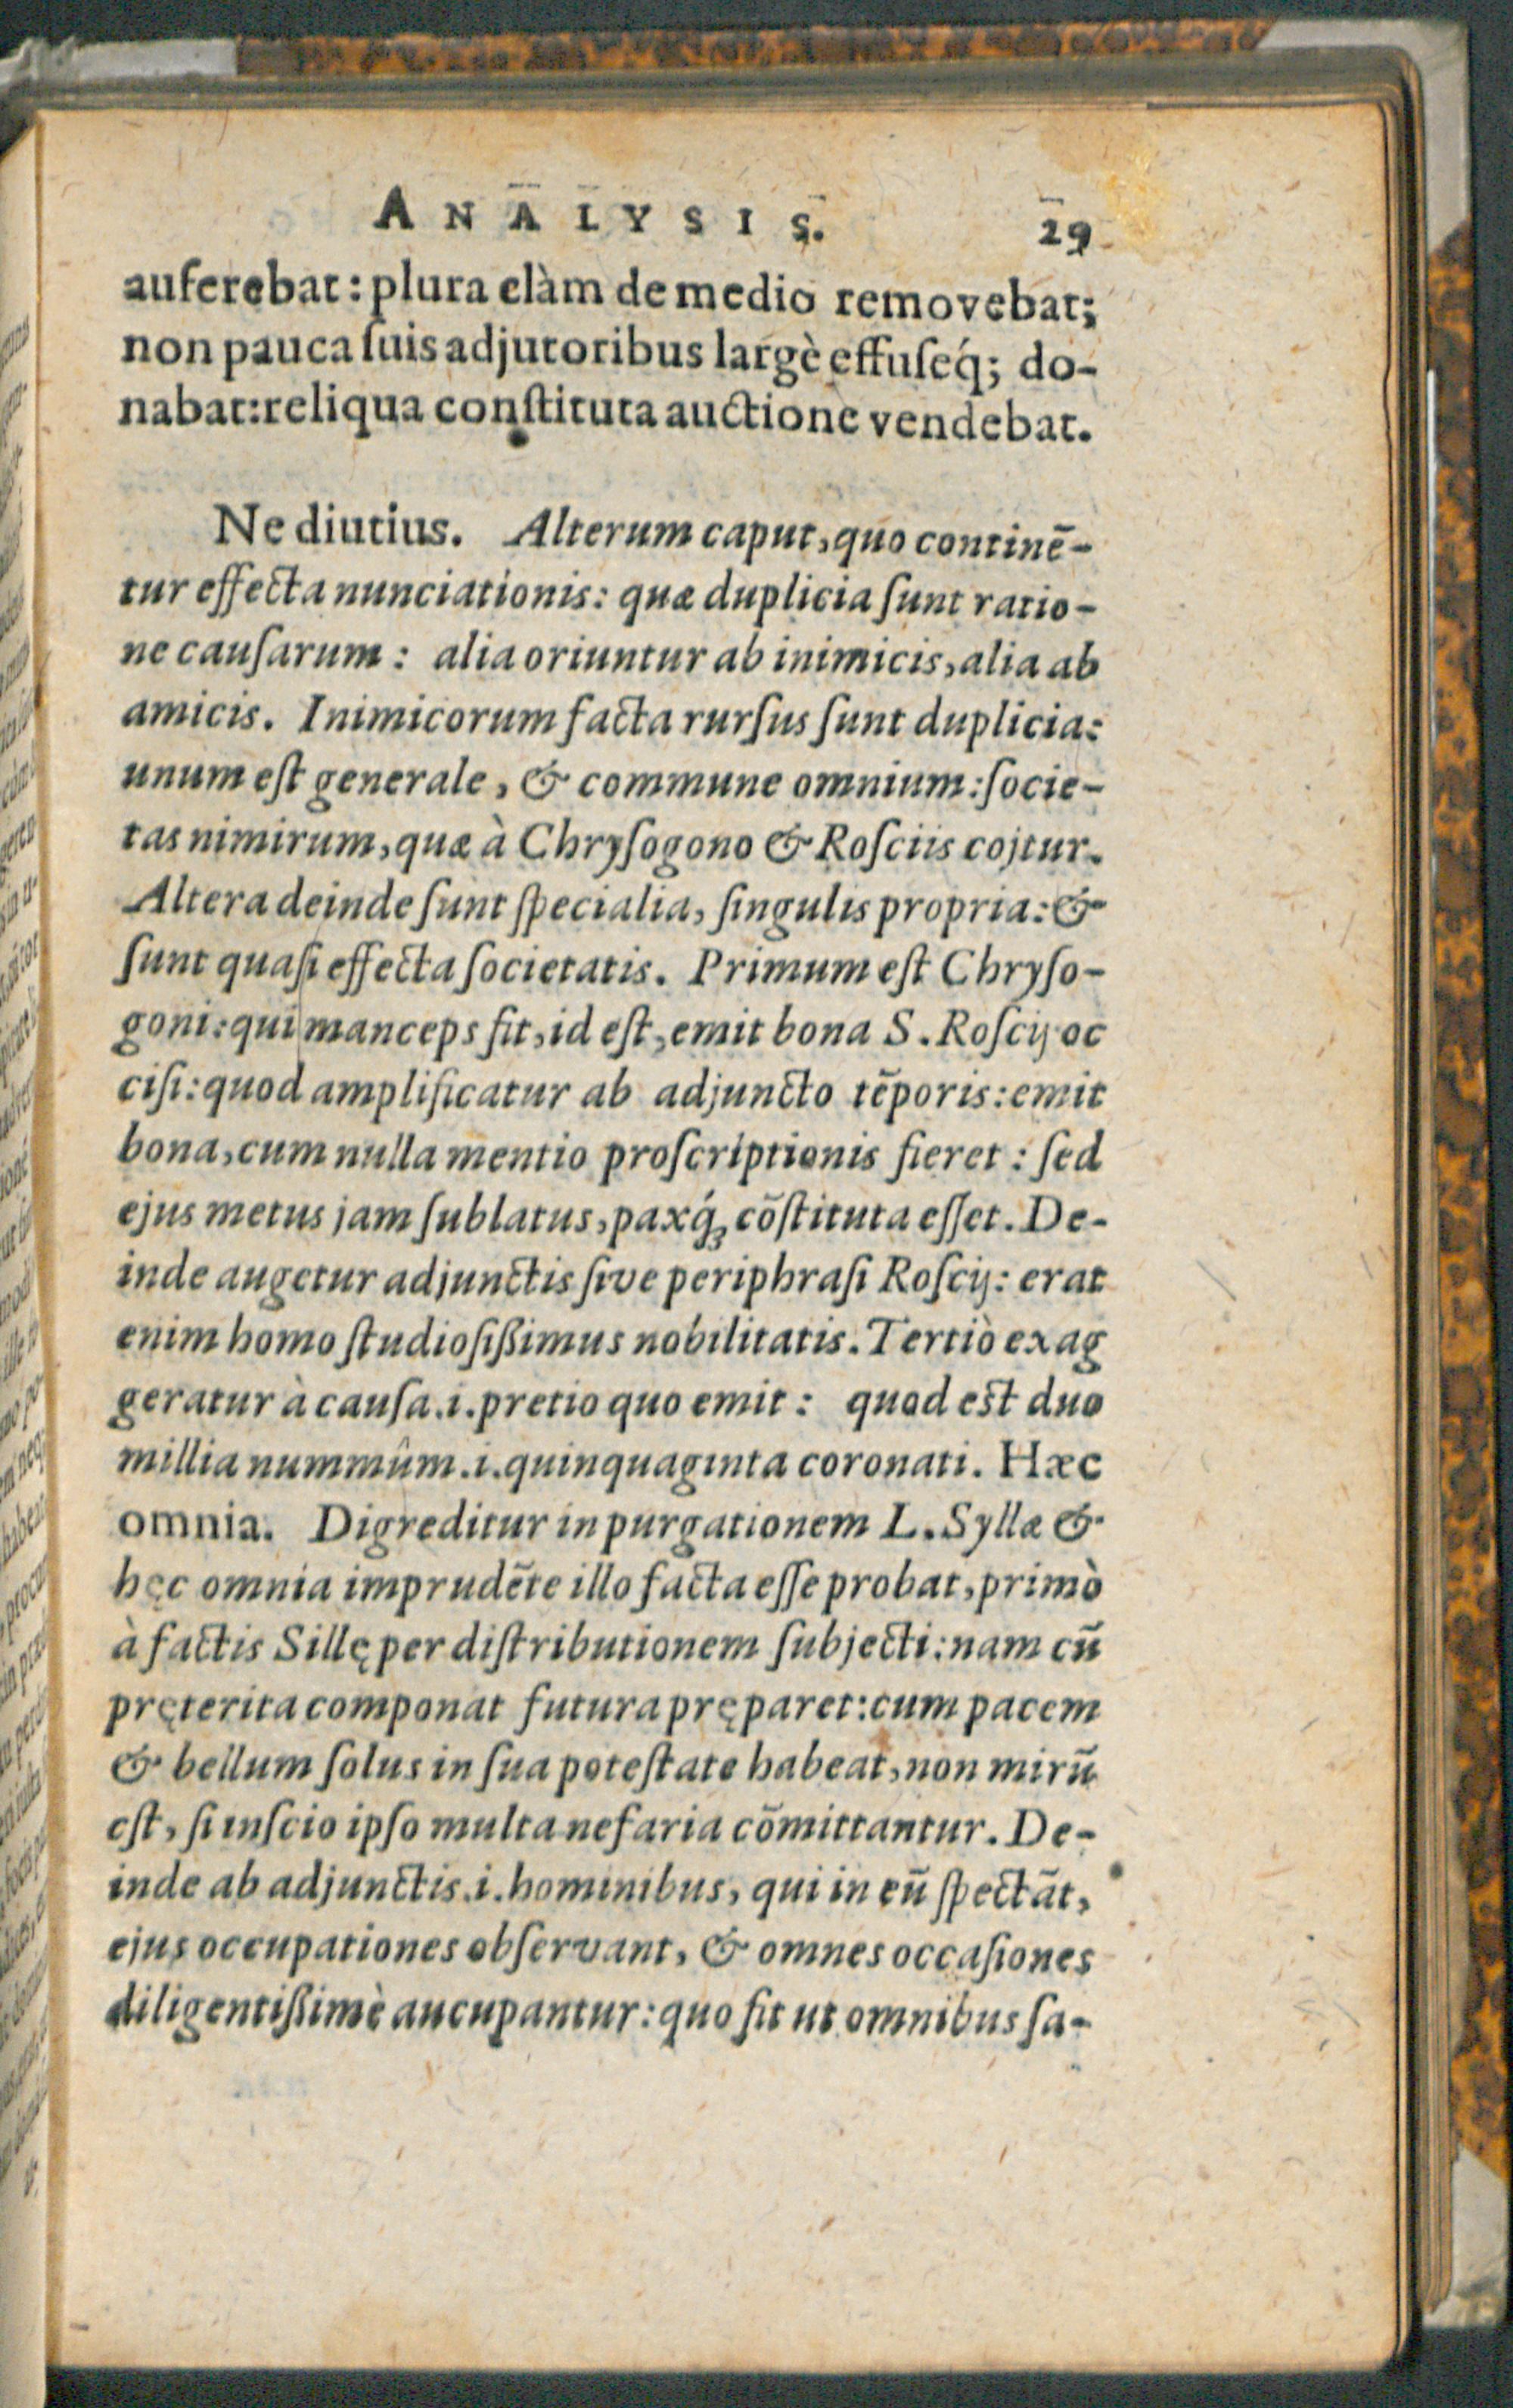 ANALYSIS. 29
auferebat: plura clàm de medio removebat;
non pauca ſuis adjutoribus largè effuſeq́; do-
nabat: reliqua conſtituta auctione vendebat.
Ne diutius. Alterum caput, quo continē-
tur effecta nunciationis: quæ duplicia ſunt ratio-
ne cauſarum: alia oriuntur ab inimicis, alia ab
amicis. Inimicorum facta rurſus ſunt duplicia:
unum eſt generale, & commune omnium: ſocie-
tas nimirum, quæ à Chryſogono & Roſciis cojtur.
Altera deinde ſunt ſpecialia, ſingulis propria: &
ſunt quaſi effecta ſocietatis. Primum eſt Chryſo-
goni: qui manceps fit, id eſt, emit bona S. Roſcij oc
ciſi: quod amplificatur ab adjuncto tēporis: emit
bona, cum nulla mentio proſcriptionis fieret: ſed
ejus metus jam ſublatus, paxq́ꝫ cōſtituta eſſet. De-
inde augetur adjunctis ſive periphraſi Roſcij: erat
enim homo ſtudioſißimus nobilitatis. Tertiò exag
geratur à cauſa .i. pretio quo emit: quod eſt duo
millia nummûm .i. quinquaginta coronati. Hæc
omnia. Digreditur in purgationem L. Syllæ &
hęc omnia imprudēte illo facta eſſe probat, primò
à factis Sillę per diſtributionem ſubjecti: nam cū
pręterita componat futura pręparet: cum pacem
& bellum ſolus in ſua poteſtate habeat, non mirū
eſt, ſi inſcio ipſo multa nefaria cōmittantur. De-
inde ab adjunctis .i. hominibus, qui in eū ſpectāt,
ejus occupationes obſervant, & omnes occaſiones
diligentißimè aucupantur: quo fit ut omnibus ſa-